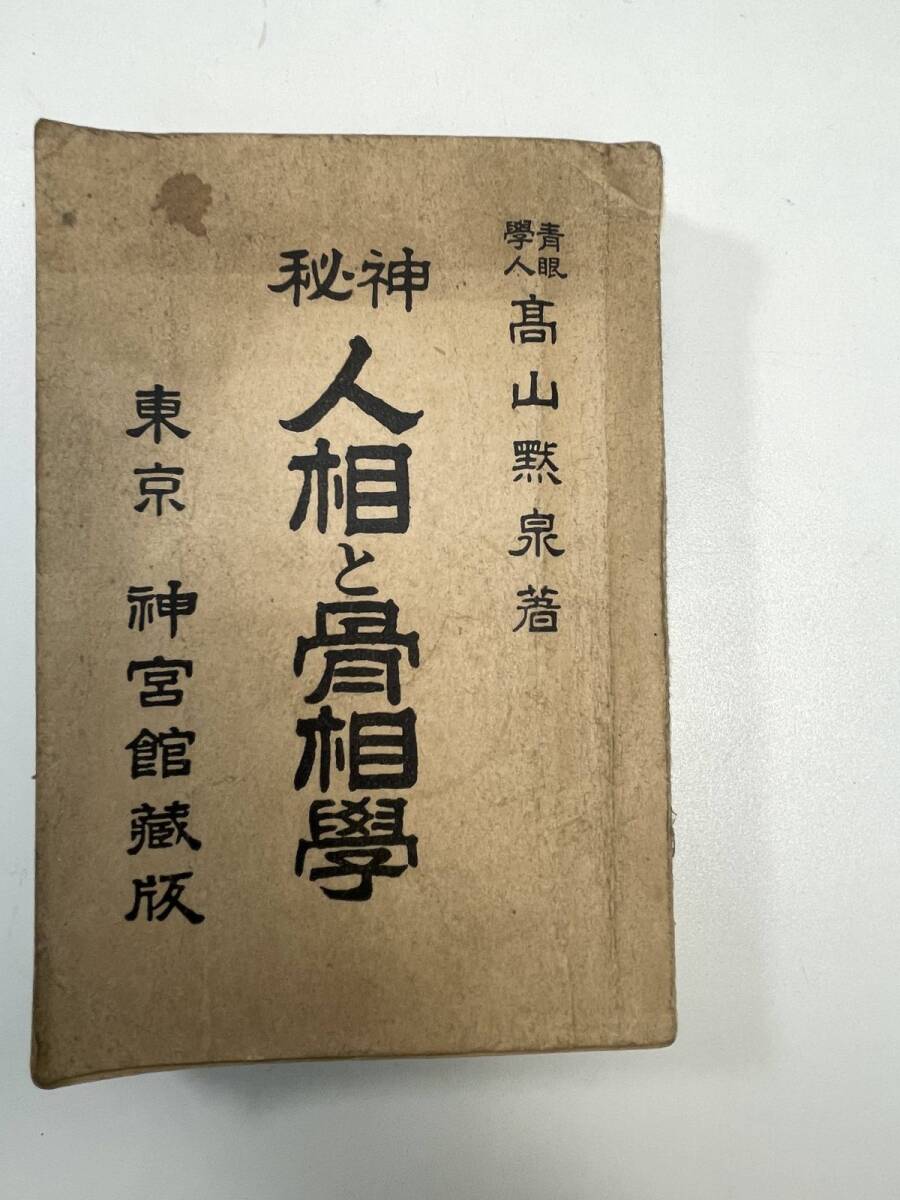 青眼學人 髙山默泉著
神秘
人相と骨相學
東京 神宮館藏版